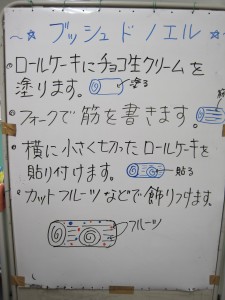 ～☆ ブッシュドノエル ☆～
・ロールケーキにチョコ生クリームを
塗ります。 塗る
・フォークで筋を書きます。
・横に小さく切ったロールケーキを
貼り付けます。 貼る
・カットフルーツなどで飾りつけます。
フルーツ